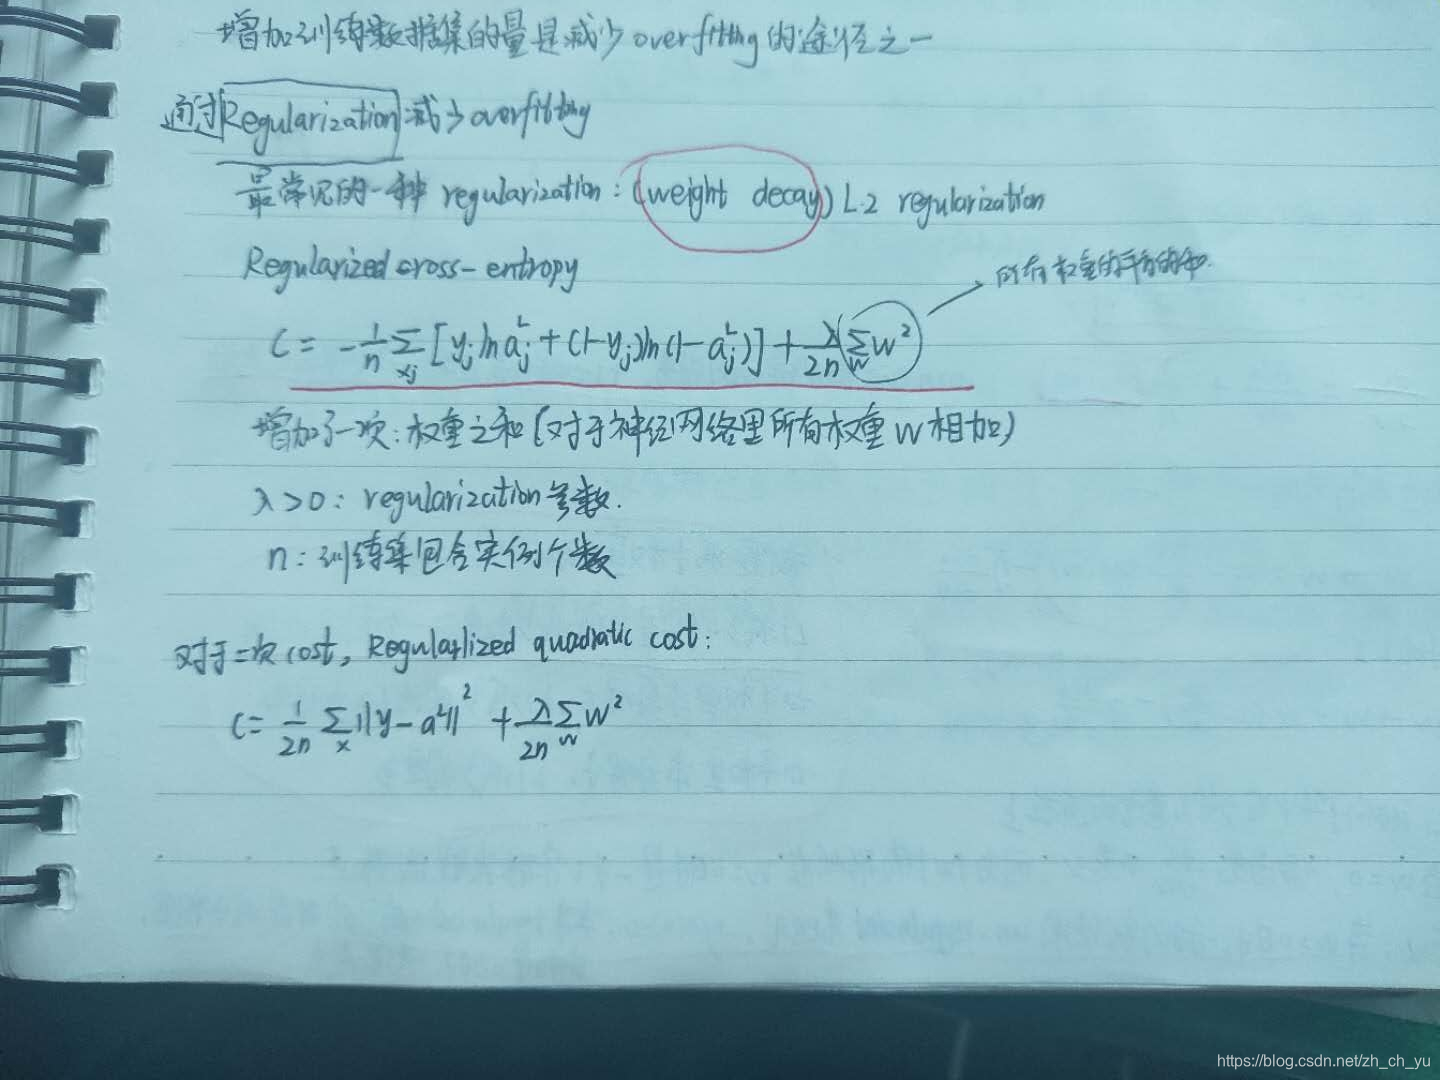 增加训练数据集的量是减少overfitting的途径之一
通过Regularization减少overfitting
最常见的一种 regularization: (weight decay) L2 regularization
Regularized cross-entropy
所有权重的平方的和.
C = -1/n Σ_xj [y_j ln a_j^L + (1-y_j) ln (1-a_j^L)] + λ/2n Σ_w w²
增加了一项: 权重之和(对于神经网络里所有权重w相加)
λ>0: regularization参数.
n: 训练集包含实例个数
对于二次cost, Regularlized quadratic cost:
C = 1/2n Σ_x ||y - a^L||² + λ/2n Σ_w w²
https://blog.csdn.net/zh_ch_yu